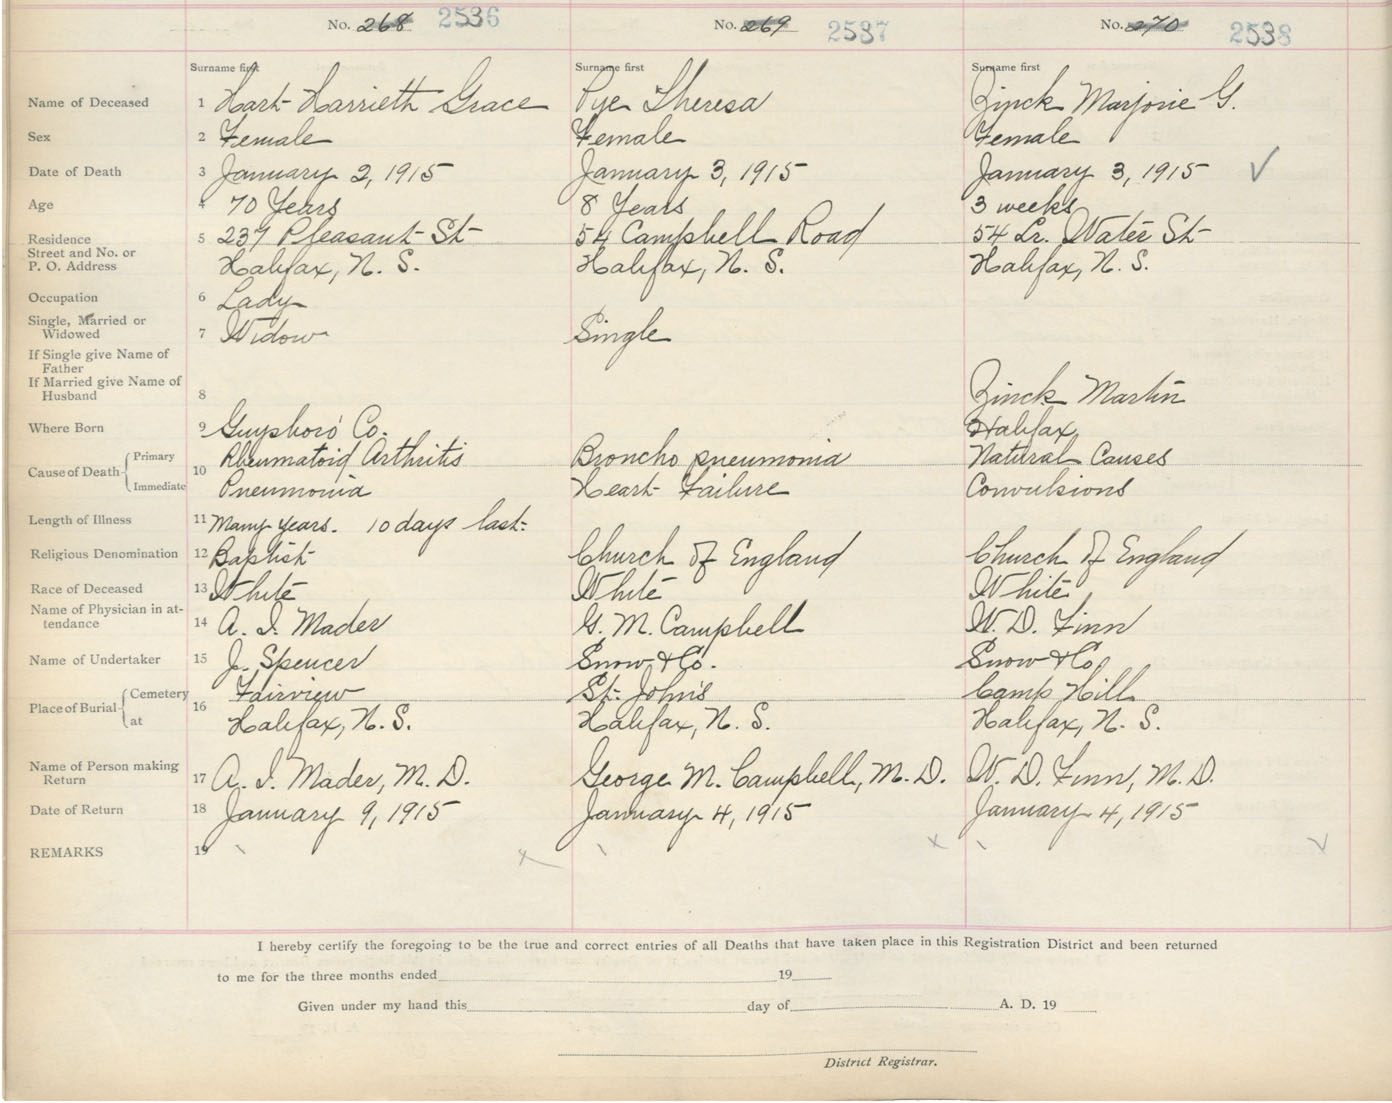 No. 268 2536 No. 269 2537 No. 270 2538
Surname first Surname first Surname first
Name of Deceased 1 Hart Harrieth Grace Pye Theresa Zinck Marjorie G.
Sex 2 Female Female Female
Date of Death 3 January 2, 1915 January 3, 1915 January 3, 1915 ✓
Age 4 70 Years 8 Years 3 weeks
Residence 5 237 Pleasant St 54 Campbell Road 54 Lr. Water St
Street and No. or
P. O. Address Halifax, N. S. Halifax, N. S. Halifax, N. S.
Occupation 6 Lady
Single, Married or
Widowed 7 Widow Single
If Single give Name of
Father
If Married give Name of
Husband 8 Zinck Martin
Where Born 9 Guysboro' Co. Halifax
Cause of Death Primary 10 Rheumatoid Arthritis Broncho pneumonia Natural Causes
Immediate Pneumonia Heart Failure Convulsions
Length of Illness 11 Many years. 10 days last.
Religious Denomination 12 Baptist Church of England Church of England
Race of Deceased 13 White White White
Name of Physician in at-
tendance 14 A. I. Mader G. M. Campbell W. D. Finn
Name of Undertaker 15 J. Spencer Snow & Co. Snow & Co
Place of Burial Cemetery 16 Fairview St. John's Camp Hill
at Halifax, N. S. Halifax, N. S. Halifax, N. S.
Name of Person making
Return 17 A. I. Mader, M. D. George M. Campbell, M. D. W. D. Finn, M. D.
Date of Return 18 January 9, 1915 January 4, 1915 January 4, 1915
REMARKS 19
I hereby certify the foregoing to be the true and correct entries of all Deaths that have taken place in this Registration District and been returned
to me for the three months ended 19
Given under my hand this day of A. D. 19
District Registrar.